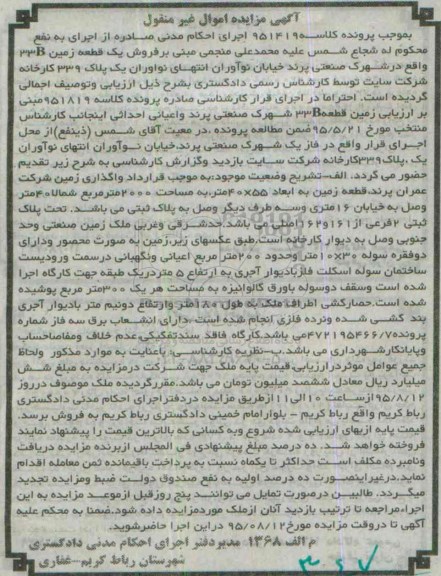 آگهی مزایده اموال غیر منقول
بموجب پرونده کلاسه ۹۵۱۴۱۹ اجرای احکام مدنی صادره از اجرای به نفع
محکوم له شجاع شمس علیه محمدعلی منجمی مبنی برفروش یک قطعه زمین ۳۳B
واقع درشهرک صنعتی پرند خیابان نوآوران انتهای نواوران یک پلاک ۳۳۹ کارخانه
شرکت سایت توسط کارشناس رسمی دادگستری بشرح ذیل ارزیابی وتوصیف اجمالی
گردیده است. احتراما در اجرای قرار کارشناسی صادره پرونده کلاسه ۹۵۱۸۱۹مبنی
بر ارزیابی زمین قطعه۳۳B شهرک صنعتی پرند واعیانی احداثی اینجانب کارشناس
منتخب مورخ ۹۵/۵/۲۱ ضمن مطالعه پرونده ،در معیت آقای شمس (ذینفع)از محل
اجرای قرار واقع در فاز یک شهرک صنعتی پرند،خیابان نوآوران انتهای نوآوران
یک ،پلاک۳۳۹کارخانه شرکت سایت بازدید وگزارش کارشناسی به شرح زیر تقدیم
حضور می گردد. الف-تشریح وضعیت موجود:به موجب قرارداد واگذاری زمین شرکت
عمران پرند،قطعه زمین به ابعاد ۵۵×۴۰متر،به مساحت ۲۰۰۰مترمربع شمالا۴۰متر
وصل به خیابان ۱۶متری وسه طرف دیگر وصل به پلاک ثبتی می باشد. تحت پلاک
ثبتی ۲فرعی از۱۶۱و۱۶۲اصلی می باشد.حدشرقی وغربی ملک زمین صنعتی وحد
جنوبی وصل به دیوار کارخانه است.طبق عکسهای زیر،زمین به صورت محصور ودارای
دوفقره سوله ۳۰×۱۰متر وحدود ۲۰۰متر مربع اعیانی ونگهبانی درسمت ورودیست
ساختمان سوله اسکلت فلزبادیوار آجری به ارتفاع ۵ متردریک طبقه جهت کارگاه اجرا
شده است وسقف دوسوله باورق گالوانیزه به مساحت هر یک ۳۰۰متر مربع پوشیده
شده است.حصارکشی اطراف ملک به طول ۱۸۰متر وارتفاع دونیم متر بادیوار آجری
بند کشی شده ونرده فلزی انجام شده است .دارای انشعاب برق سه فاز شماره
پرونده۴۷۲۱۹۵۴۶۶/۷می باشد.کارگاه فاقد سندتفکیکی،عدم خلاف ومفاصاحساب
وپایانکارشهرداری می باشد.ب-نظریه کارشناسی: باعنایت به موارد مذکور ولحاظ
جمیع عوامل موثردرارزیابی،قیمت پایه ملک جهت شرکت درمزایده به مبلغ شش
میلیارد ریال معادل ششصد میلیون تومان می باشد.مقررگردیده ملک موصوف درروز
۹۵/۸/۱۲ ازساعت ۱۰الی۱۱ازطریق مزایده دردفتراجرای احکام مدنی دادگستری
رباط کریم واقع رباط کریم – بلوارامام خمینی دادگستری رباط کریم به فروش برسد.
قیمت پایه ازبهای ارزیابی شده شروع وبه کسانی که بالاترین قیمت را پیشنهاد نمایند
فروخته خواهد شد. ده درصد مبلغ پیشنهادی فی المجلس ازبرنده مزایده دریافت
ونامبرده مکلف است حداکثر تا یکماه نسبت به پرداخت باقیمانده ثمن معامله اقدام
نماید.درغیراینصورت ده درصد اولیه به نفع صندوق دولت ضبط ومزایده تجدید
میگردد. طالبین درصورت تمایل می توانند پنج روزقبل ازموعد مزایده به این
اجراءمراجعه تا ترتیب بازدید آنان ازملک موردمزایده داده شود.ضمنا به محکوم علیه
آگهی تا دروقت مزایده مورخ ۹۵/۰۸/۱۲ دراین اجرا حاضرشوید.
م الف ۱۳۶۸ مدیردفتر اجرای احکام مدنی دادگستری
شهرستان رباط کریم–غفاری